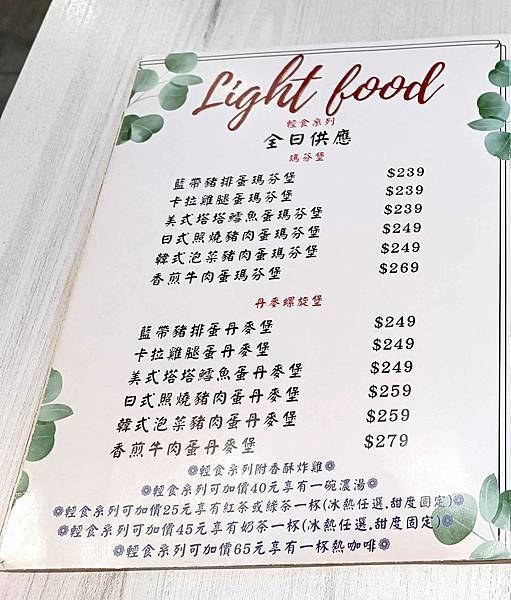 Light food
輕食系列
全日供應
瑪芬堡
藍帶豬排蛋瑪芬堡 $239
卡拉雞腿蛋瑪芬堡 $239
美式塔塔鱈魚蛋瑪芬堡 $239
日式照燒豬肉蛋瑪芬堡 $249
韓式泡菜豬肉蛋瑪芬堡 $249
香煎牛肉蛋瑪芬堡 $269
丹麥螺旋堡
藍帶豬排蛋丹麥堡 $249
卡拉雞腿蛋丹麥堡 $249
美式塔塔鱈魚蛋丹麥堡 $249
日式照燒豬肉蛋丹麥堡 $259
韓式泡菜豬肉蛋丹麥堡 $259
香煎牛肉蛋丹麥堡 $279
❁輕食系列附香酥炸雞❁
❁輕食系列可加價40元享有一碗濃湯❁
❁輕食系列可加價25元享有紅茶或綠茶一杯(冰熱任選.甜度固定)❁
❁輕食系列可加價45元享有奶茶一杯(冰熱任選.甜度固定)❁
❁輕食系列可加價65元享有一杯熱咖啡❁